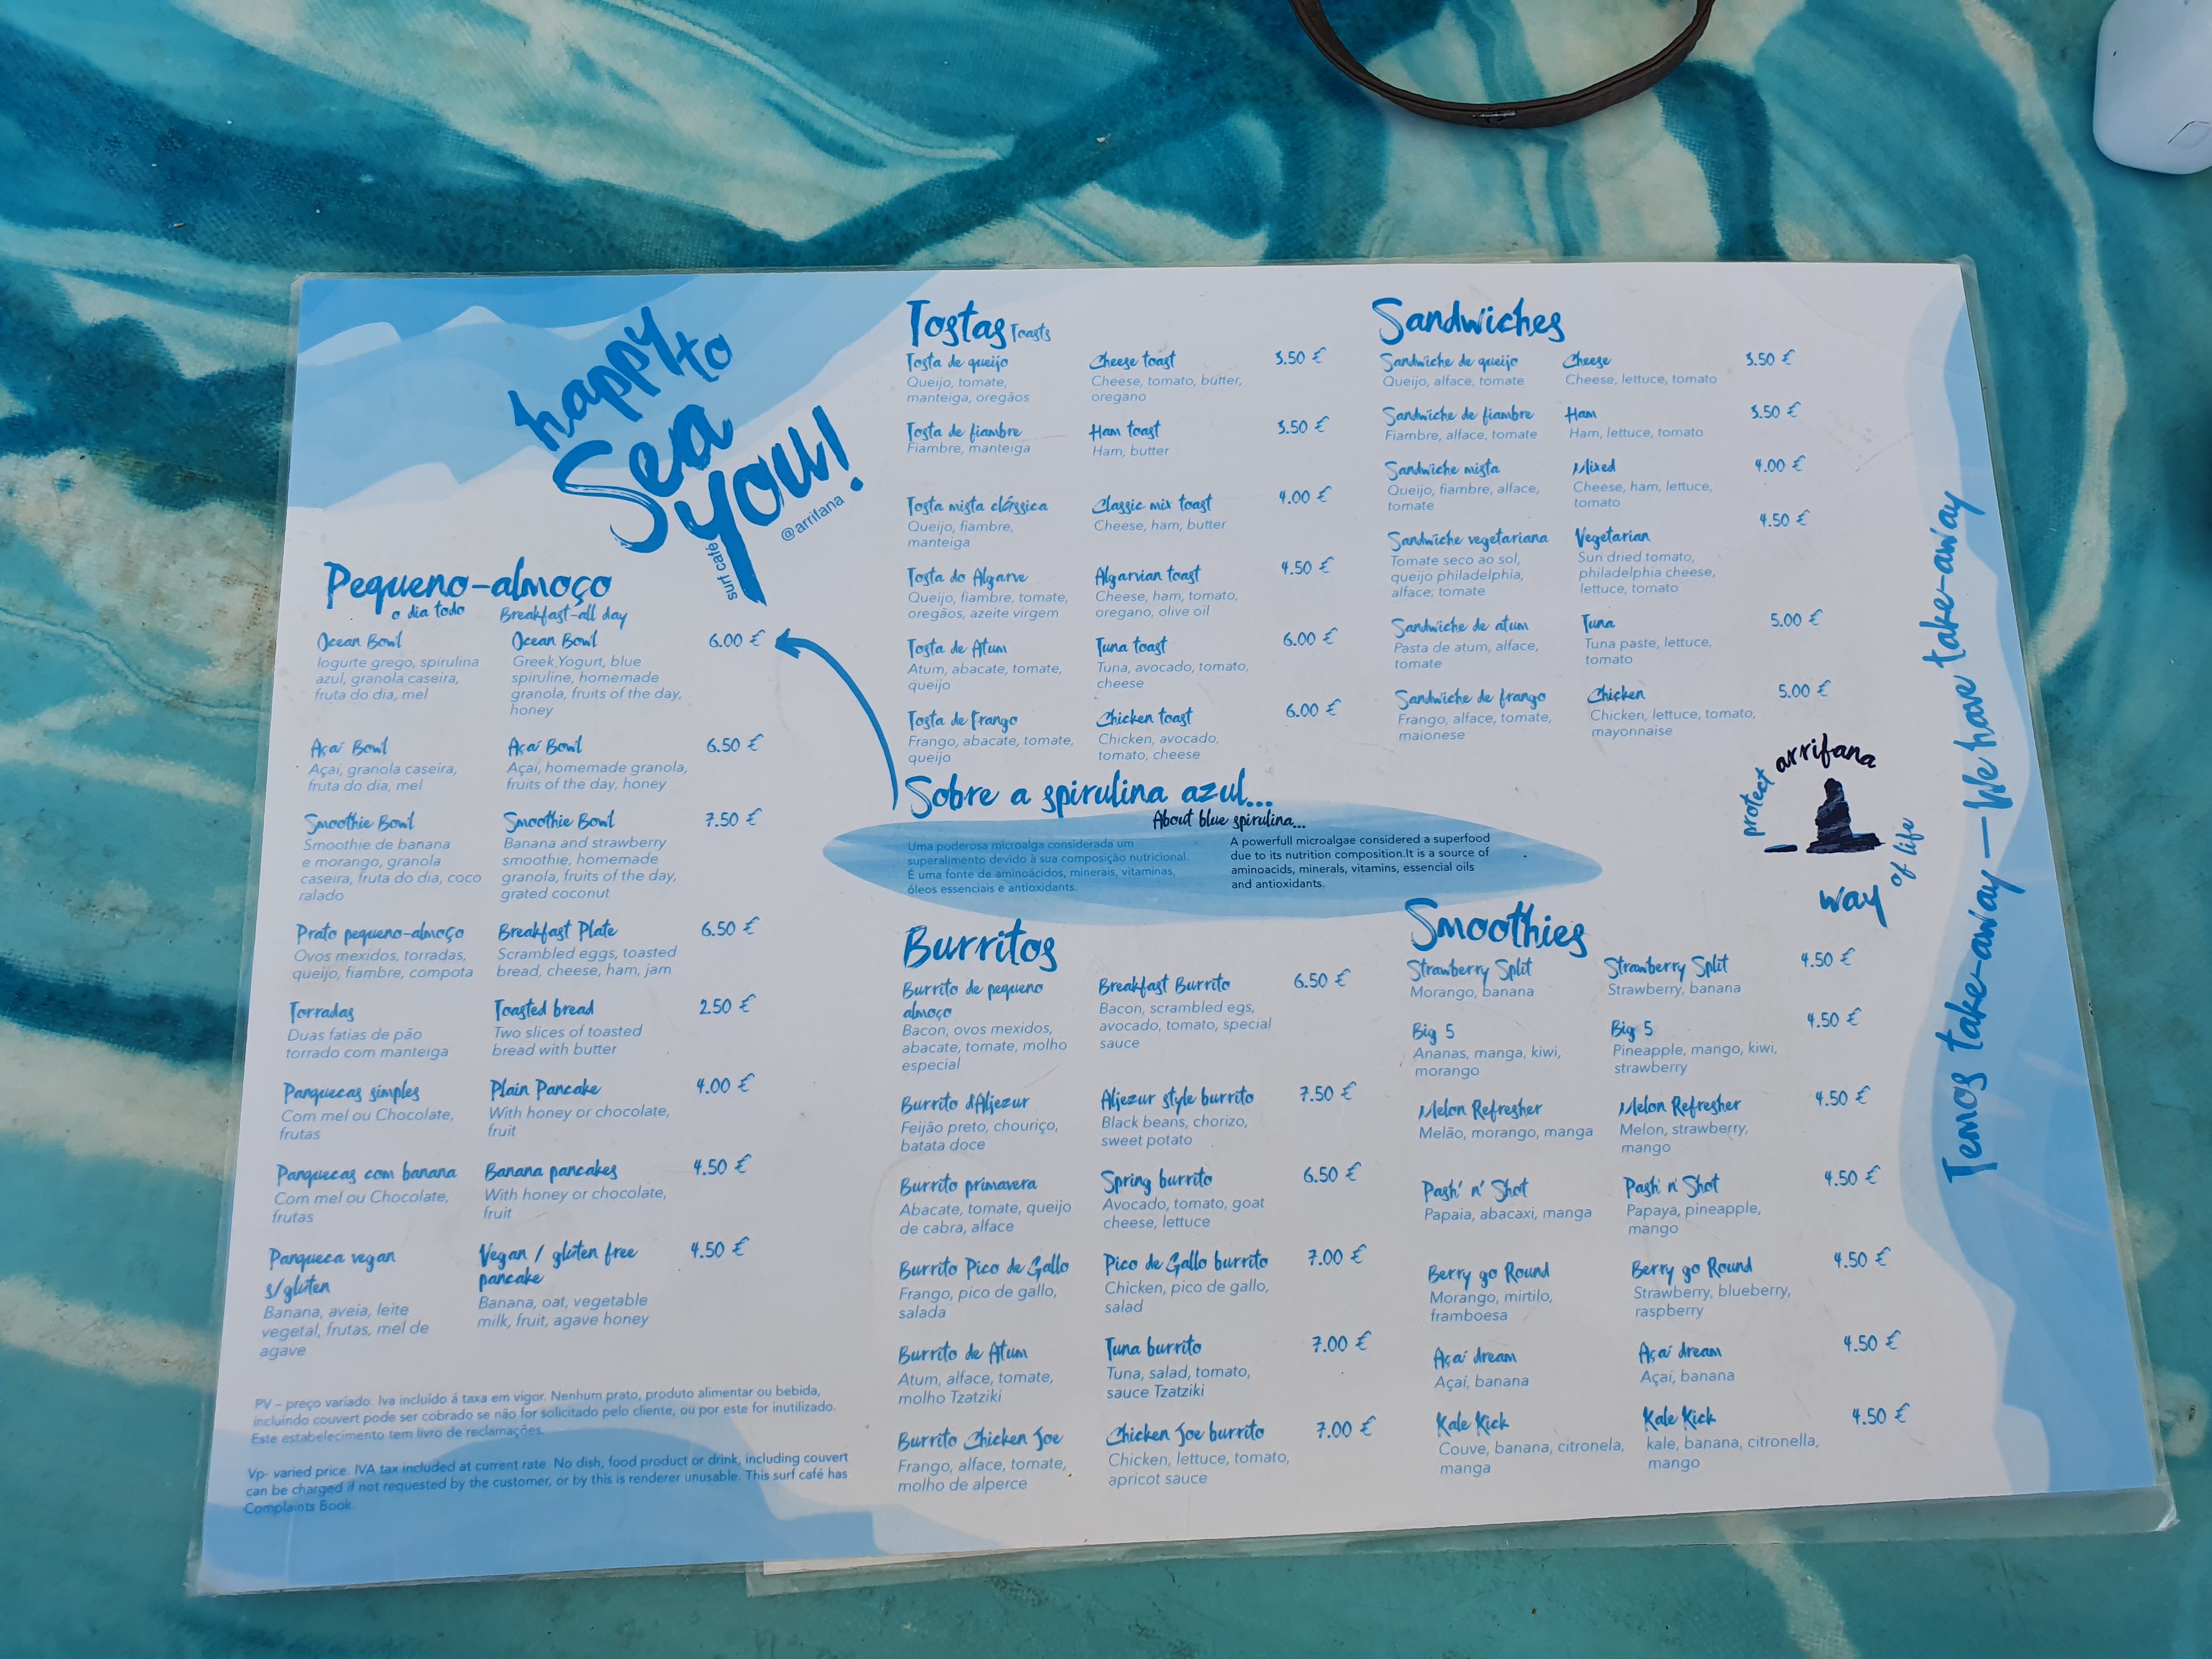 happy to
Sea
you!
surf café
@arrifana
Pequeno-almoço
o dia todo Breakfast-all day
Ocean Bowl Ocean Bowl 6.00 €
Iogurte grego, spirulina Greek,Yogurt, blue
azul, granola caseira, spiruline, homemade
fruta do dia, mel granola, fruits of the day,
honey
Açaí Bowl Açaí Bowl 6.50 €
Açaí, granola caseira, Açaí, homemade granola,
fruta do dia, mel fruits of the day, honey
Smoothie Bowl Smoothie Bowl 7.50 €
Smoothie de banana Banana and strawberry
e morango, granola smoothie, homemade
caseira, fruta do dia, coco granola, fruits of the day,
ralado grated coconut
Prato pequeno-almoço Breakfast Plate 6.50 €
Ovos mexidos, torradas, Scrambled eggs, toasted
queijo, fiambre, compota bread, cheese, ham, jam
Torradas Toasted bread 2.50 €
Duas fatias de pão Two slices of toasted
torrado com manteiga bread with butter
Panquecas simples Plain Pancake 4.00 €
Com mel ou Chocolate, With honey or chocolate,
frutas fruit
Panquecas com banana Banana pancakes 4.50 €
Com mel ou Chocolate, With honey or chocolate,
frutas fruit
Panqueca vegan Vegan / gluten free 4.50 €
s/glúten pancake
Banana, aveia, leite Banana, oat, vegetable
vegetal, frutas, mel de milk, fruit, agave honey
agave
PV – preço variado. Iva incluído á taxa em vigor. Nenhum prato, produto alimentar ou bebida,
incluíndo couvert pode ser cobrado se não for solicitado pelo cliente, ou por este for inutilizado.
Este estabelecimento tem livro de reclamações.
Vp- varied price. IVA tax included at current rate. No dish, food product or drink, including couvert
can be charged if not requested by the customer, or by this is renderer unusable. This surf café has
Complaints Book.
Tostas Toasts
Tosta de queijo Cheese toast 3.50 €
Queijo, tomate, Cheese, tomato, butter,
manteiga, oregãos oregano
Tosta de fiambre Ham toast 3.50 €
Fiambre, manteiga Ham, butter
Tosta mista clássica Classic mix toast 4.00 €
Queijo, fiambre, Cheese, ham, butter
manteiga
Tosta do Algarve Algarvian toast 4.50 €
Queijo, fiambre, tomate, Cheese, ham, tomato,
oregãos, azeite virgem oregano, olive oil
Tosta de Atum Tuna toast 6.00 €
Atum, abacate, tomate, Tuna, avocado, tomato,
queijo cheese
Tosta de Frango Chicken toast 6.00 €
Frango, abacate, tomate, Chicken, avocado,
queijo tomato, cheese
Sandwiches
Sandwiche de queijo Cheese 3.50 €
Queijo, alface, tomate Cheese, lettuce, tomato
Sandwiche de fiambre Ham 3.50 €
Fiambre, alface, tomate Ham, lettuce, tomato
Sandwiche mista Mixed 4.00 €
Queijo, fiambre, alface, Cheese, ham, lettuce,
tomate tomato
Sandwiche vegetariana Vegetarian 4.50 €
Tomate seco ao sol, Sun dried tomato,
queijo philadelphia, philadelphia cheese,
alface, tomate lettuce, tomato
Sandwiche de atum Tuna 5.00 €
Pasta de atum, alface, Tuna paste, lettuce,
tomate tomato
Sandwiche de frango Chicken 5.00 €
Frango, alface, tomate, Chicken, lettuce, tomato,
maionese mayonnaise
Sobre a spirulina azul...
About blue spirulina...
Uma poderosa microalga considerada um
superalimento devido à sua composição nutricional.
É uma fonte de aminoácidos, minerais, vitaminas,
óleos essenciais e antioxidants.
A powerfull microalgae considered a superfood
due to its nutrition composition.It is a source of
aminoacids, minerals, vitamins, essencial oils
and antioxidants.
protect arrifana
way of life
Burritos
Burrito de pequeno Breakfast Burrito 6.50 €
almoço
Bacon, ovos mexidos, Bacon, scrambled egs,
abacate, tomate, molho avocado, tomato, special
especial sauce
Burrito d'Aljezur Aljezur style burrito 7.50 €
Feijão preto, chouriço, Black beans, chorizo,
batata doce sweet potato
Burrito primavera Spring burrito 6.50 €
Abacate, tomate, queijo Avocado, tomato, goat
de cabra, alface cheese, lettuce
Burrito Pico de Gallo Pico de Gallo burrito 7.00 €
Frango, pico de gallo, Chicken, pico de gallo,
salada salad
Burrito de Atum Tuna burrito 7.00 €
Atum, alface, tomate, Tuna, salad, tomato,
molho Tzatziki sauce Tzatziki
Burrito Chicken Joe Chicken Joe burrito 7.00 €
Frango, alface, tomate, Chicken, lettuce, tomato,
molho de alperce apricot sauce
Smoothies
Strawberry Split Strawberry Split 4.50 €
Morango, banana Strawberry, banana
Big 5 Big 5 4.50 €
Ananas, manga, kiwi, Pineapple, mango, kiwi,
morango strawberry
Melon Refresher Melon Refresher 4.50 €
Melão, morango, manga Melon, strawberry,
mango
Pash' n' Shot Pash' n' Shot 4.50 €
Papaia, abacaxi, manga Papaya, pineapple,
mango
Berry go Round Berry go Round 4.50 €
Morango, mirtilo, Strawberry, blueberry,
framboesa raspberry
Açaí dream Açaí dream 4.50 €
Açaí, banana Açaí, banana
Kale Kick Kale Kick 4.50 €
Couve, banana, citronela, kale, banana, citronella,
manga mango
Temos take-away — We have take-away